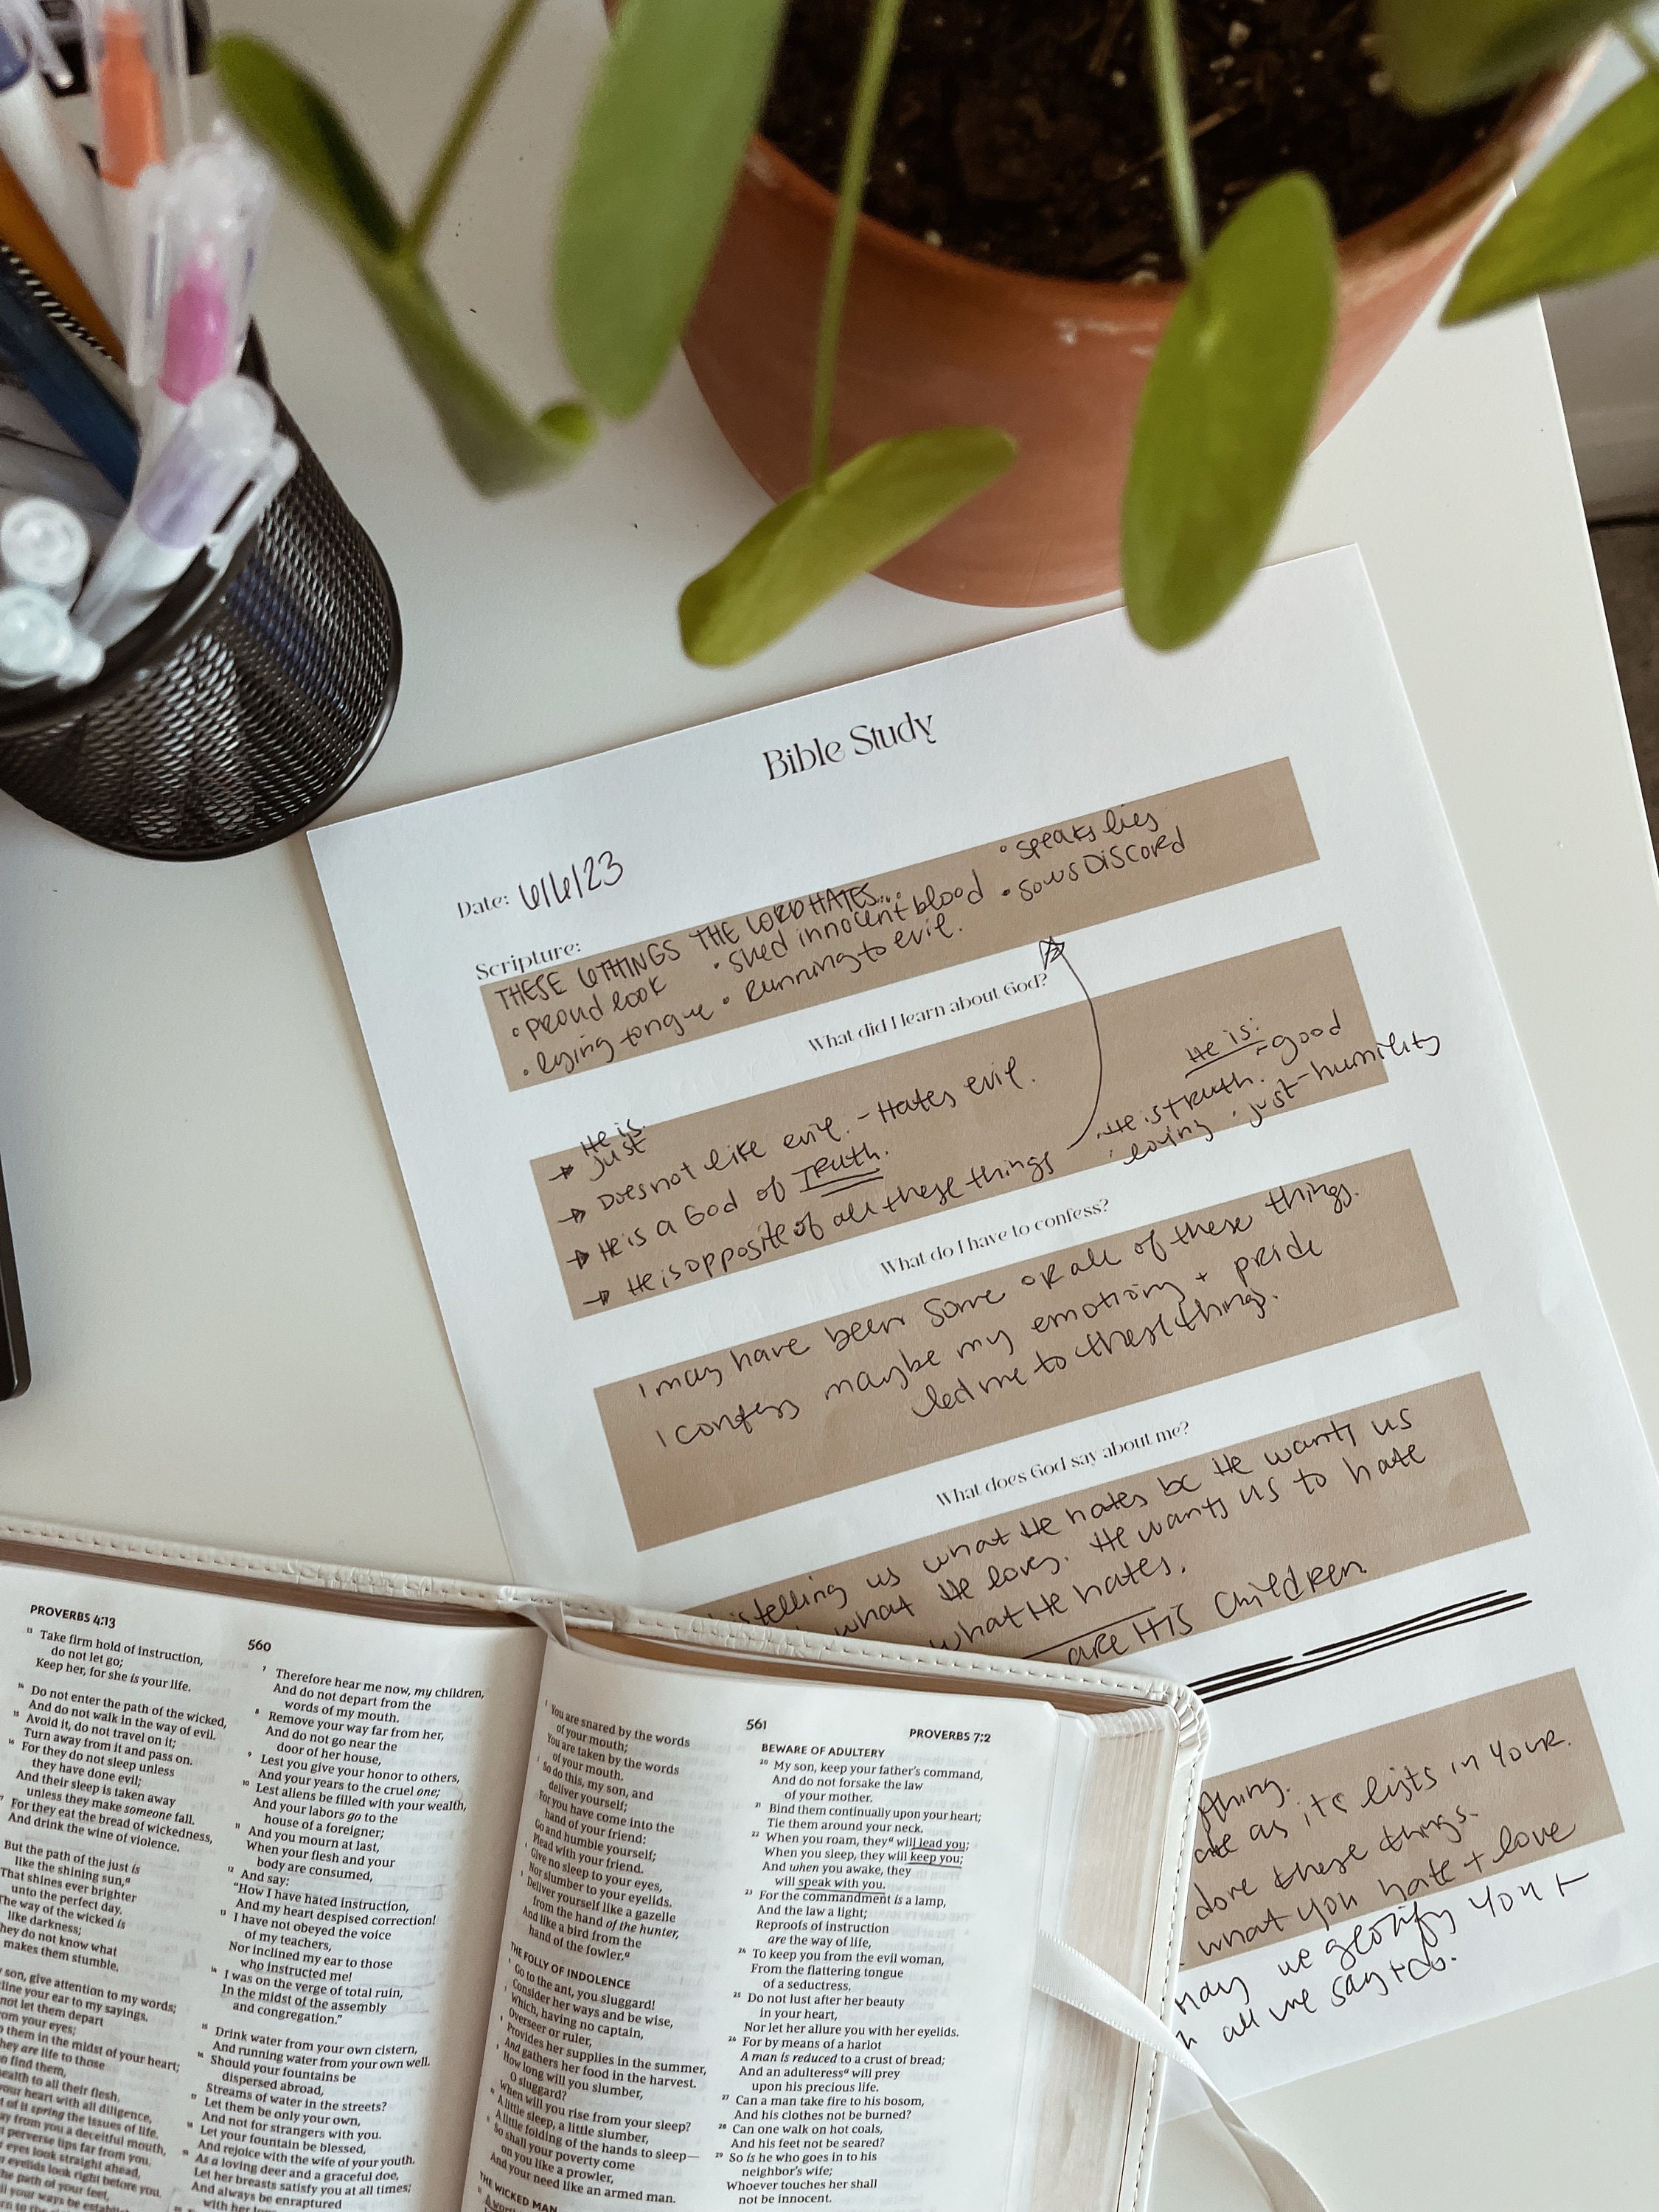 Bible Study
Date: 6/6/23
Scripture:
THESE 6 THINGS THE LORD HATES...
• proud look
• lying tongue
• shed innocent blood
• running to evil.
• speaks lies
• sows DISCORD
What did I learn about God?
→ He is just
→ Does not like evil. - Hates evil.
→ He is a God of TRUTH.
→ He is opposite of all these things
He is:
- good
• He is truth.
- humility
• loving • just
What do I have to confess?
I may have been some or all of these things.
I confess maybe my emotions + pride
led me to these things.
What does God say about me?
is telling us what He hates bc He wants us
what He loves. He wants us to hate
what He hates.
are HIS children
thing.
as its lists in Your
these things.
what you hate + love
may we glorify You +
all we say + do.
PROVERBS 4:13
560
13 Take firm hold of instruction,
do not let go;
Keep her, for she is your life.
14 Do not enter the path of the wicked,
And do not walk in the way of evil.
15 Avoid it, do not travel on it;
Turn away from it and pass on.
16 For they do not sleep unless
they have done evil;
And their sleep is taken away
unless they make someone fall.
17 For they eat the bread of wickedness,
And drink the wine of violence.
But the path of the just is
like the shining sun,a
That shines ever brighter
unto the perfect day.
The way of the wicked is
like darkness;
They do not know what
makes them stumble.
son, give attention to my words;
cline your ear to my sayings.
not let them depart
from your eyes;
them in the midst of your heart;
they are life to those
find them,
health to all their flesh.
your heart with all diligence,
of it spring the issues of life.
away from you a deceitful mouth,
perverse lips far from you.
eyes look straight ahead,
eyelids look right before you.
the path of your feet,
all your ways be
7 Therefore hear me now, my children,
And do not depart from the
words of my mouth.
8 Remove your way far from her,
And do not go near the
door of her house,
9 Lest you give your honor to others,
And your years to the cruel one;
10 Lest aliens be filled with your wealth,
And your labors go to the
house of a foreigner;
11 And you mourn at last,
When your flesh and your
body are consumed,
12 And say:
"How I have hated instruction,
And my heart despised correction!
13 I have not obeyed the voice
of my teachers,
Nor inclined my ear to those
who instructed me!
14 I was on the verge of total ruin,
In the midst of the assembly
and congregation."
15 Drink water from your own cistern,
And running water from your own well.
16 Should your fountains be
dispersed abroad,
Streams of water in the streets?
17 Let them be only your own,
And not for strangers with you.
18 Let your fountain be blessed,
And rejoice with the wife of your youth.
19 As a loving deer and a graceful doe,
Let her breasts satisfy you at all times;
And always be enraptured
with her
561
PROVERBS 7:2
2 You are snared by the words
of your mouth;
You are taken by the words
of your mouth.
3 So do this, my son, and
deliver yourself;
For you have come into the
hand of your friend:
Go and humble yourself;
Plead with your friend.
4 Give no sleep to your eyes,
Nor slumber to your eyelids.
5 Deliver yourself like a gazelle
from the hand of the hunter,
And like a bird from the
hand of the fowler.a
THE FOLLY OF INDOLENCE
6 Go to the ant, you sluggard!
Consider her ways and be wise,
7 Which, having no captain,
Overseer or ruler,
8 Provides her supplies in the summer,
And gathers her food in the harvest.
9 How long will you slumber,
O sluggard?
When will you rise from your sleep?
10 A little sleep, a little slumber,
A little folding of the hands to sleep—
11 So shall your poverty come
on you like a prowler,
And your need like an armed man.
THE WICKED MAN
BEWARE OF ADULTERY
20 My son, keep your father's command,
And do not forsake the law
of your mother.
21 Bind them continually upon your heart;
Tie them around your neck.
22 When you roam, theya will lead you;
When you sleep, they will keep you;
And when you awake, they
will speak with you.
23 For the commandment is a lamp,
And the law a light;
Reproofs of instruction
are the way of life,
24 To keep you from the evil woman,
From the flattering tongue
of a seductress.
25 Do not lust after her beauty
in your heart,
Nor let her allure you with her eyelids.
26 For by means of a harlot
A man is reduced to a crust of bread;
And an adulteressa will prey
upon his precious life.
27 Can a man take fire to his bosom,
And his clothes not be burned?
28 Can one walk on hot coals,
And his feet not be seared?
29 So is he who goes in to his
neighbor's wife;
Whoever touches her shall
not be innocent.